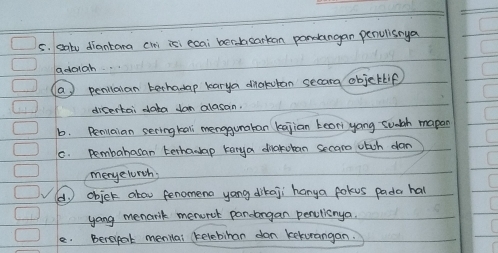 5. Satu diantara ciri isi esai berdasarkan pandangan penulisnya
adalah ...
a. Penilaian terhadap karya dilakukan secara objektif
disertai data dan alasan.
b. Penilaian seringkali menggunakan kajian teori yang sudah mapan
c. Pembahasan terhadap karya dilakukan secara utuh dan
menyeluruh.
d. Objek atau fenomena yang dikaji hanya fokus pada hal
yang menarik menurut pandangan penulisnya.
e. Bersifat menilai kelebihan dan kekurangan.